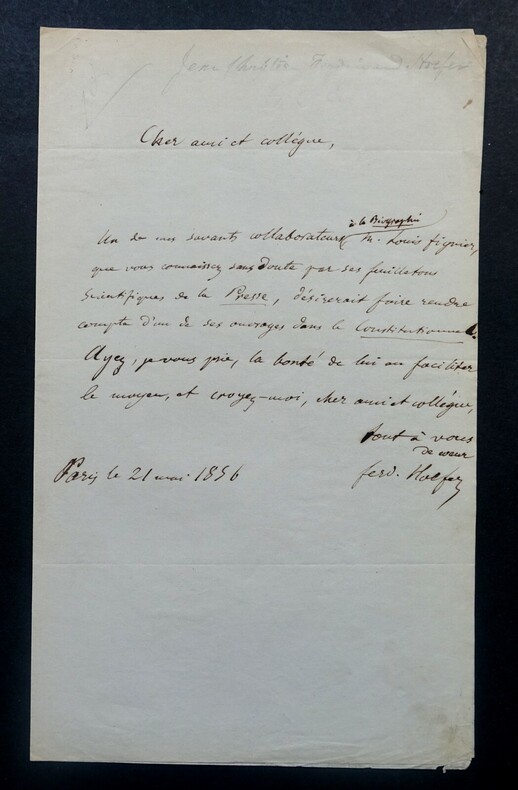 Jean Christian Ferdinand Hoefer
Cher ami et collègue,
à la Biographie
Un de mes savants collaborateurs, M. Louis Figuier,
que vous connaissez sans doute par ses feuilletons
scientifiques de la Presse, désirerait faire rendre
compte d'un de ses ouvrages dans le Constitutionnel.
Ayez, je vous prie, la bonté de lui en faciliter
le moyen, et croyez-moi, cher ami et collègue,
tout à vous
de coeur
Paris le 21 mai 1856
ferd. Hoefer